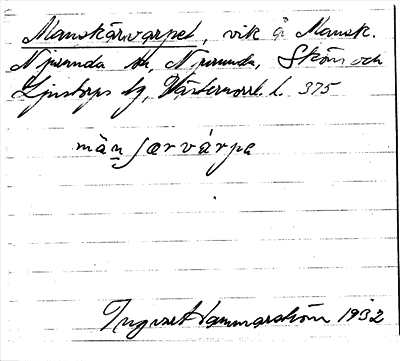 Manskärvarpet, vik å Mansk.
Njurunda sn, Njurunda, Sköns och
Ljustorps tg, Västernorrl. l. 375
män ʃærvárpe
Ingvar Hammarström 1932